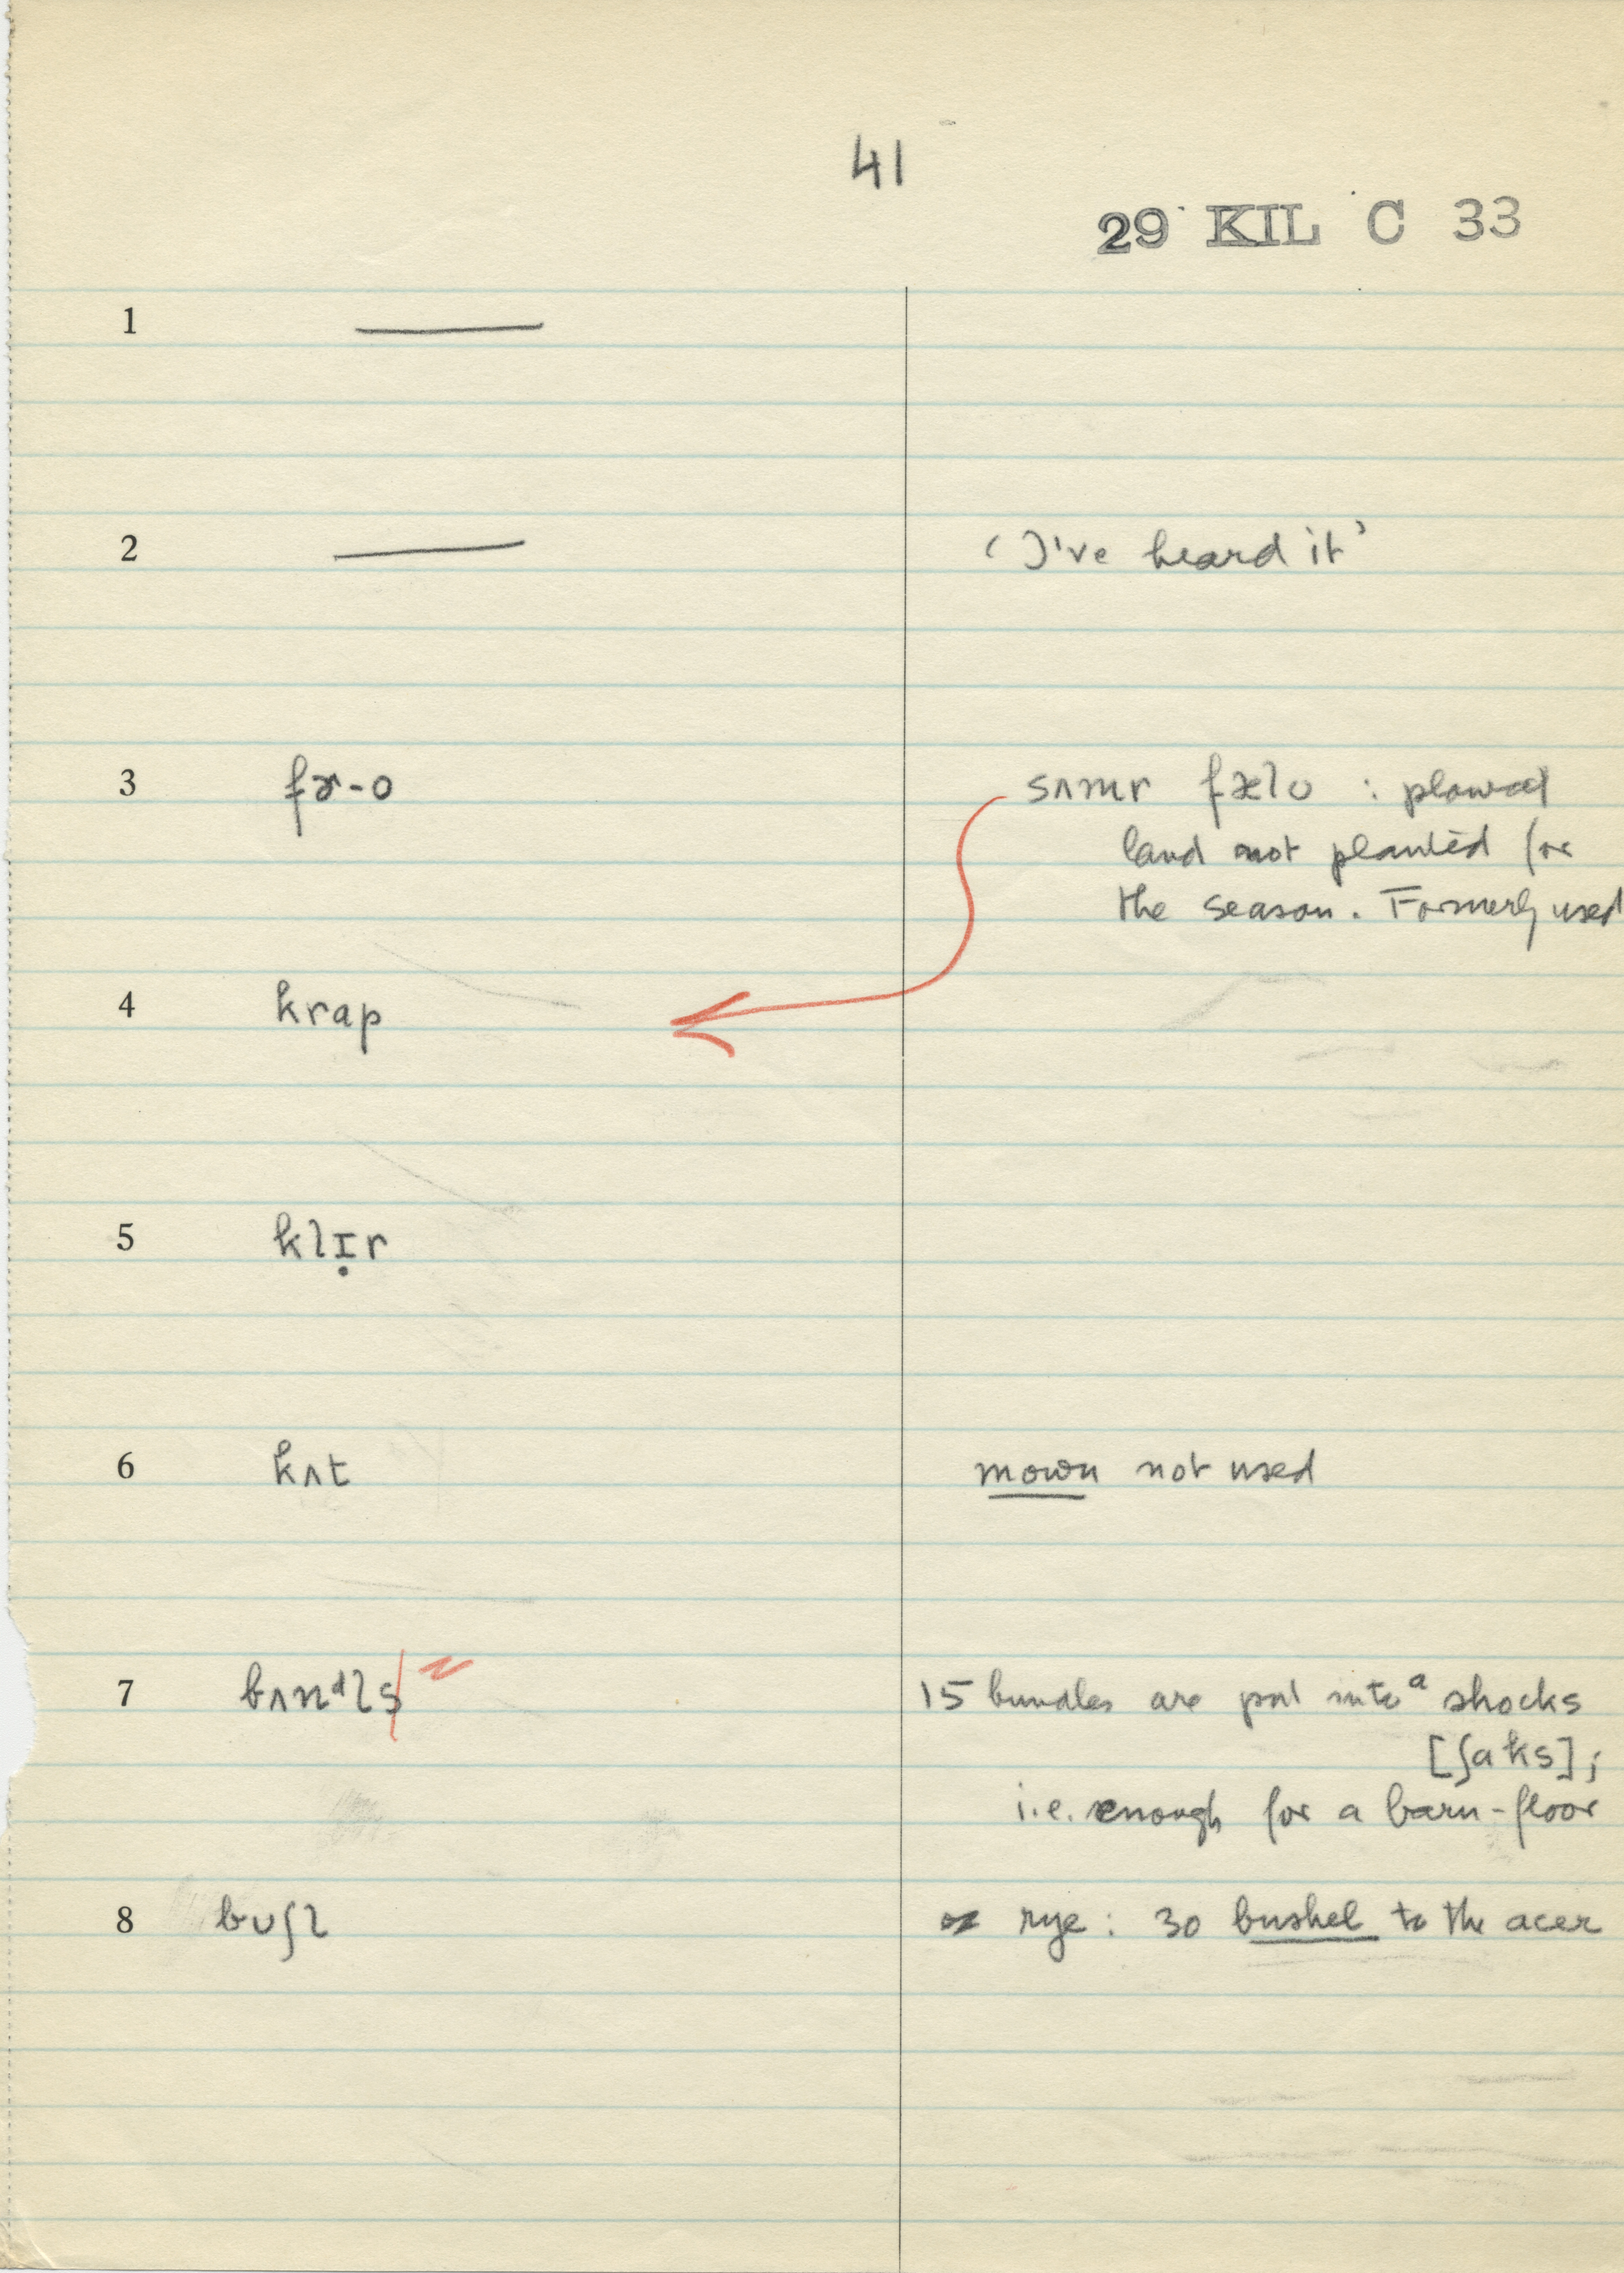 41
29 KIL C 33
1 ———
2 ——— ‘I've heard it’
3 fɚ-o sʌmr fælo : plowed
land not planted for
the season. Formerly used
4 krap
5 klɪ̣r
6 kʌt mown not used
7 bʌnᵈls z 15 bundles are put into a shocks
[ʃaks];
i.e. enough for a barn-floor
8 bʊʃl rye: 30 bushel to the acer